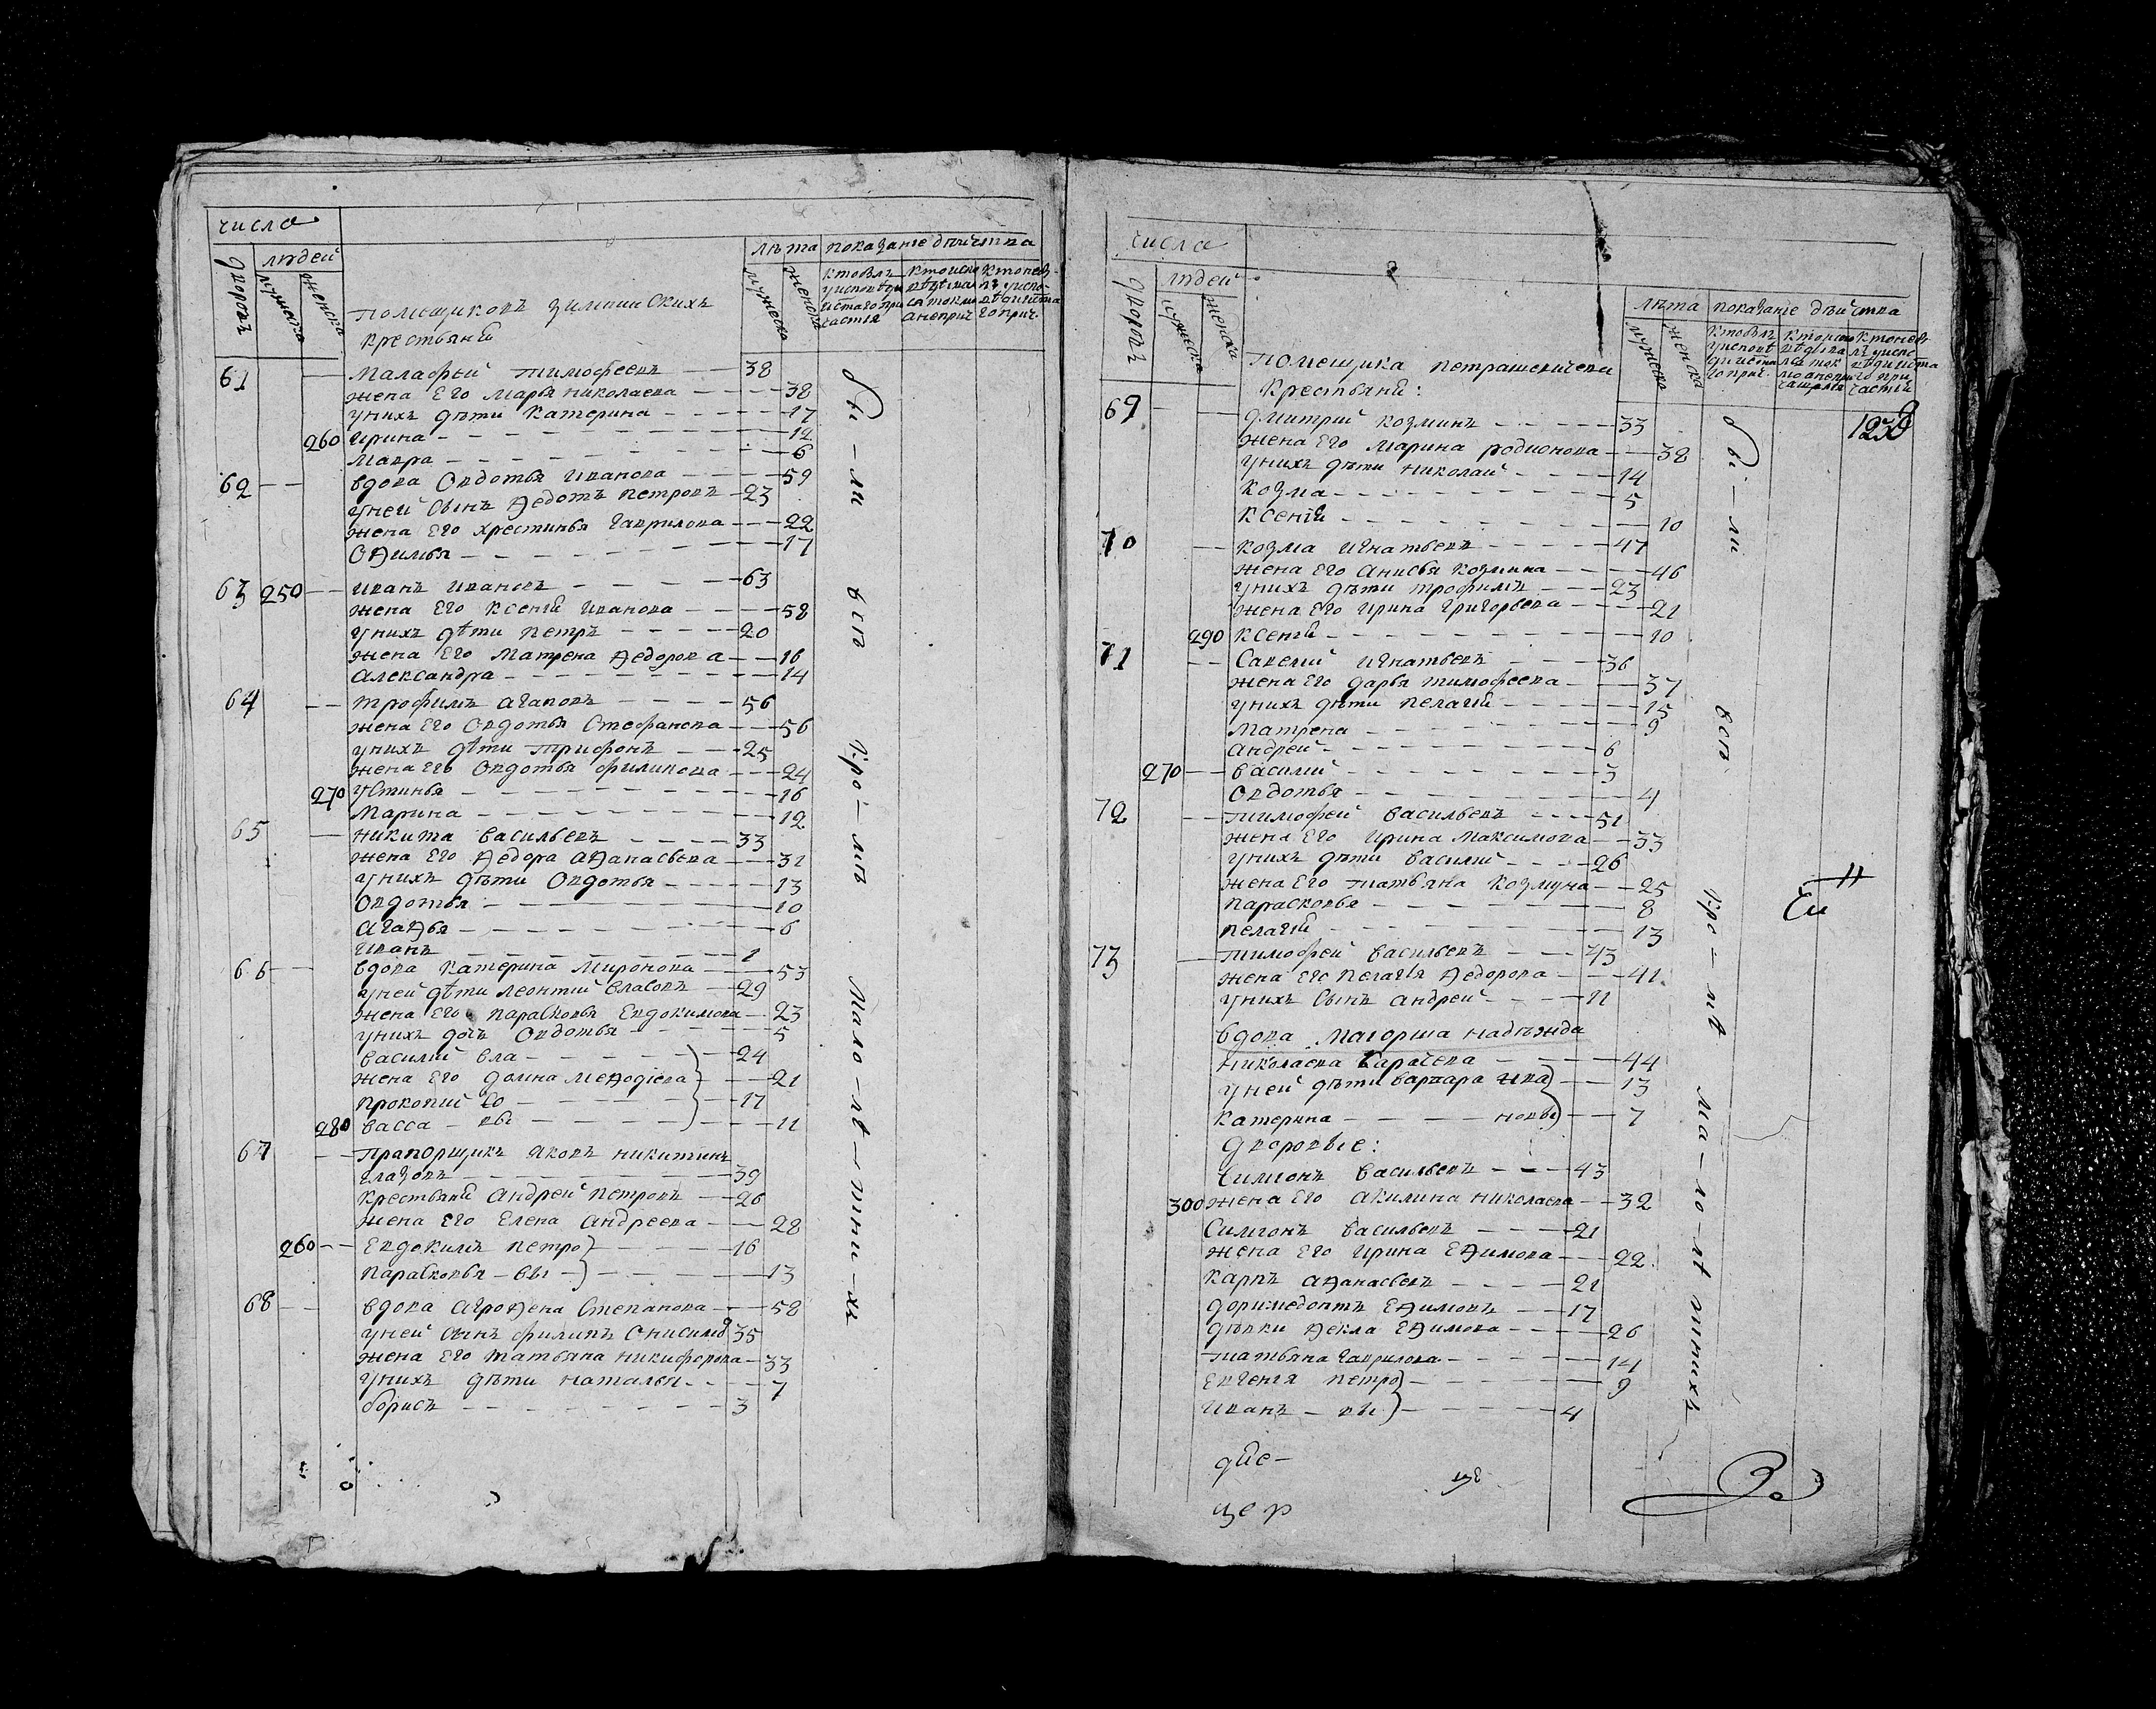 числа
дворовъ
людей
мужеска
женска
лѣта
показанїе дѣйства
мужеска
женска
помещиковъ
крестьяне
61 Малафѣй тимофеевъ 38
жена его марья николаева 38
унихъ дѣти катерина 17
260 ирина 12
мавра 6
62 вдова Овдотья иванова 59
уней сынъ Ѳедотъ петровъ 23
жена его хрестинья гаврилова 22
Оѳимья 17
63 250 иванъ ивановъ 63
жена его ксенїя иванова 58
унихъ дѣти петръ 20
жена его матрена Ѳедорова 16
александра 14
64 трофимъ агаповъ 56
жена его Овдотья Стефанова 56
унихъ дѣти трифонъ 25
жена его Овдотья филипова 24
270 устинья 16
Марина 12
65 никита васильевъ 33
жена его Ѳедора аѳанасьева 31
унихъ дѣти Овдотья 13
Овдотья 10
агаѳья 6
иванъ 1
66 вдова катерина миронова 53
уней дѣти леонтий власовъ 29
жена его парасковья Евдокимова 23
унихъ дочь Овдотья 5
василий вла 24
жена его домна меѳодїева 21
прокопий со 17
280 васса вы 11
67 прапорщикъ яковъ никитинъ
глазовъ 39
крестьяне андрей петровъ 26
жена его Елена андреева 28
260 Евдокимъ петро 16
парасковья вы 13
68 вдова агроѳена Степанова 58
уней сынъ филипъ Онисимо 35
жена его татьяна никифорова 33
унихъ дѣти наталья 7
борисъ 3
бы-ли
всѣ
кро-мѣ
мало-лѣ-тни-хъ
числа
дворовъ
людей
мужеска
женска
лѣта
показанїе дѣйства
мужеска
женска
помещика петрашевичева
крестьяне:
69 дмитрий козминъ 33
жена его марина родионова 38
унихъ дѣти николай 14
козма 5
ксенїя 10
70 козма игнатьевъ 47
жена его анисья козмина 46
унихъ дѣти трофимъ 23
жена его ирина григорьева 21
290 ксенїя 10
71 Савелий игнатьевъ 36
жена его дарья тимофеева 37
унихъ дѣти пелагїя 15
матрена 9
андрей 6
270 василий 3
Овдотья 4
72 тимофей васильевъ 51
жена его ирина максимова 33
унихъ дѣти василий 26
жена его татьяна козмина 25
парасковья 8
пелагїя 13
73 тимофей васильевъ 43
жена его пелагїя Ѳедорова 41
унихъ сынъ андрей 11
вдова маїорша надѣжда
николаева карачева 44
уней дѣти варвара ива 13
катерина новы 7
дворовые:
Симїонъ васильевъ 43
300 жена его акилина николаева 32
Симїонъ васильевъ 21
жена его ирина Еѳимова 22
карпъ аѳанасьевъ 21
доримедонтъ Еѳимовъ 17
дѣвки Ѳекла Еѳимова 26
татьяна гаврилова 14
Евгенїя петро 9
иванъ вы 4
бы-ли
всѣ
кро-мѣ
ма-ло-лѣ-тнихъ
цер